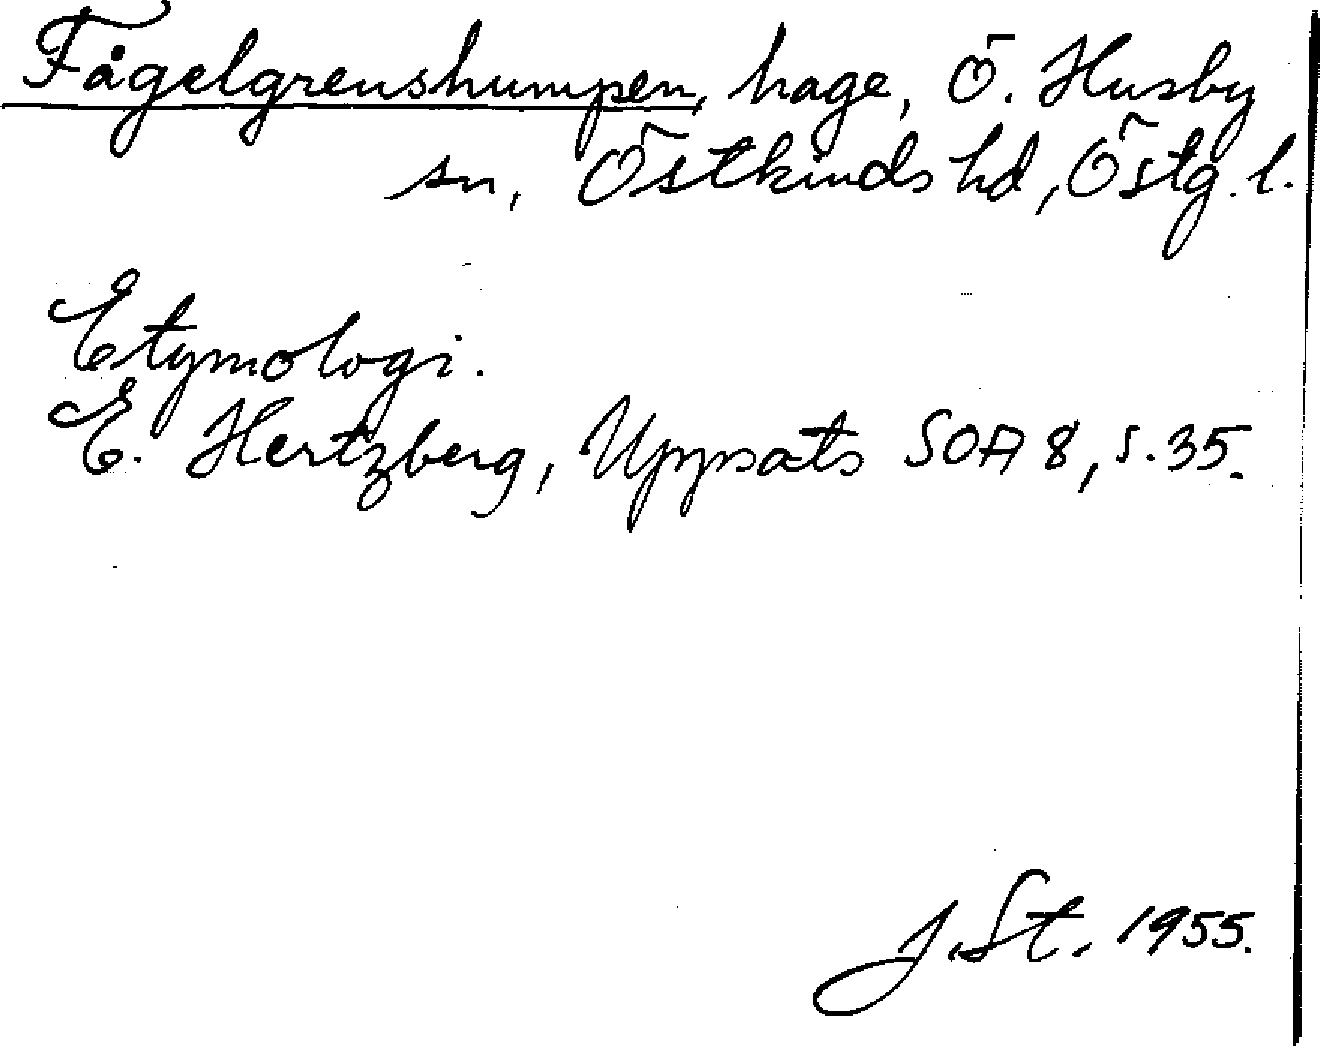 Fågelgrenshumpen, hage, Ö. Husby
sn, Östkinds hd, Östg. l.
Etymologi.
E. Hertzberg, Uppsats SOA 8, s. 35.
J. St. 1955.